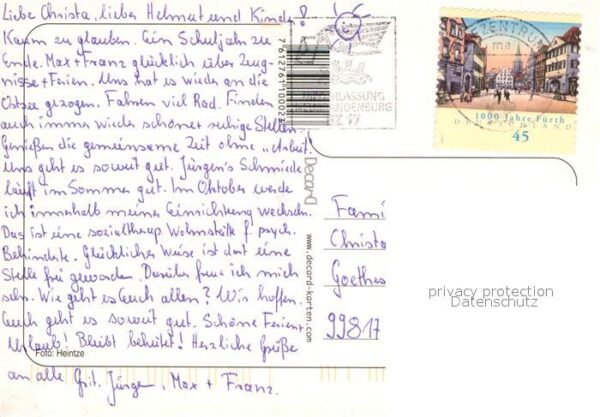 Liebe Christa, lieber Helmut und Kinder!
Kaum zu glauben. Ein Schuljahr zu
Ende. Max + Franz glücklich über Zeug-
nisse + Ferien. Uns hat es wieder an die
Ostsee gezogen. Fahren viel Rad. Finden
auch immer wieder schöne ruhige Stellen.
Genießen die gemeinsame Zeit ohne „Arbeit".
Uns geht es soweit gut. Jürgen's Schmiede
läuft im Sommer gut. Im Oktober werde
ich innerhalb meiner Einrichtung wechseln.
Das ist eine sozialtherap. Wohnstätte f. psych.
Behinderte. Glücklicher Weise ist dort eine
Stelle frei geworden. Darüber freue ich mich
sehr. Wie geht es Euch allen? Wir hoffen,
Euch geht es soweit gut. Schöne Ferien +
Urlaub! Bleibt behütet! Herzliche Grüße
an alle Grit, Jürgen, Max + Franz.
Foto: Heintze
7612761000028
Decard
www.decard-karten.com
ZENTRUM
me
LASSUNG
NDENBURG
1000 Jahre Fürth
DEUTSCHLAND
45
Fami
Christa
Goethes
99817
privacy protection
Datenschutz